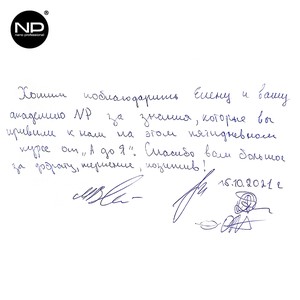 NP
nano professional
Хотим поблагодарить Елену и вашу
академию NP за знания, которые вы
привили к нам на этом пятидневном
курсе от „А до Я". Спасибо вам большое
за доброту, терпение, позитив!
15.10.2021 г